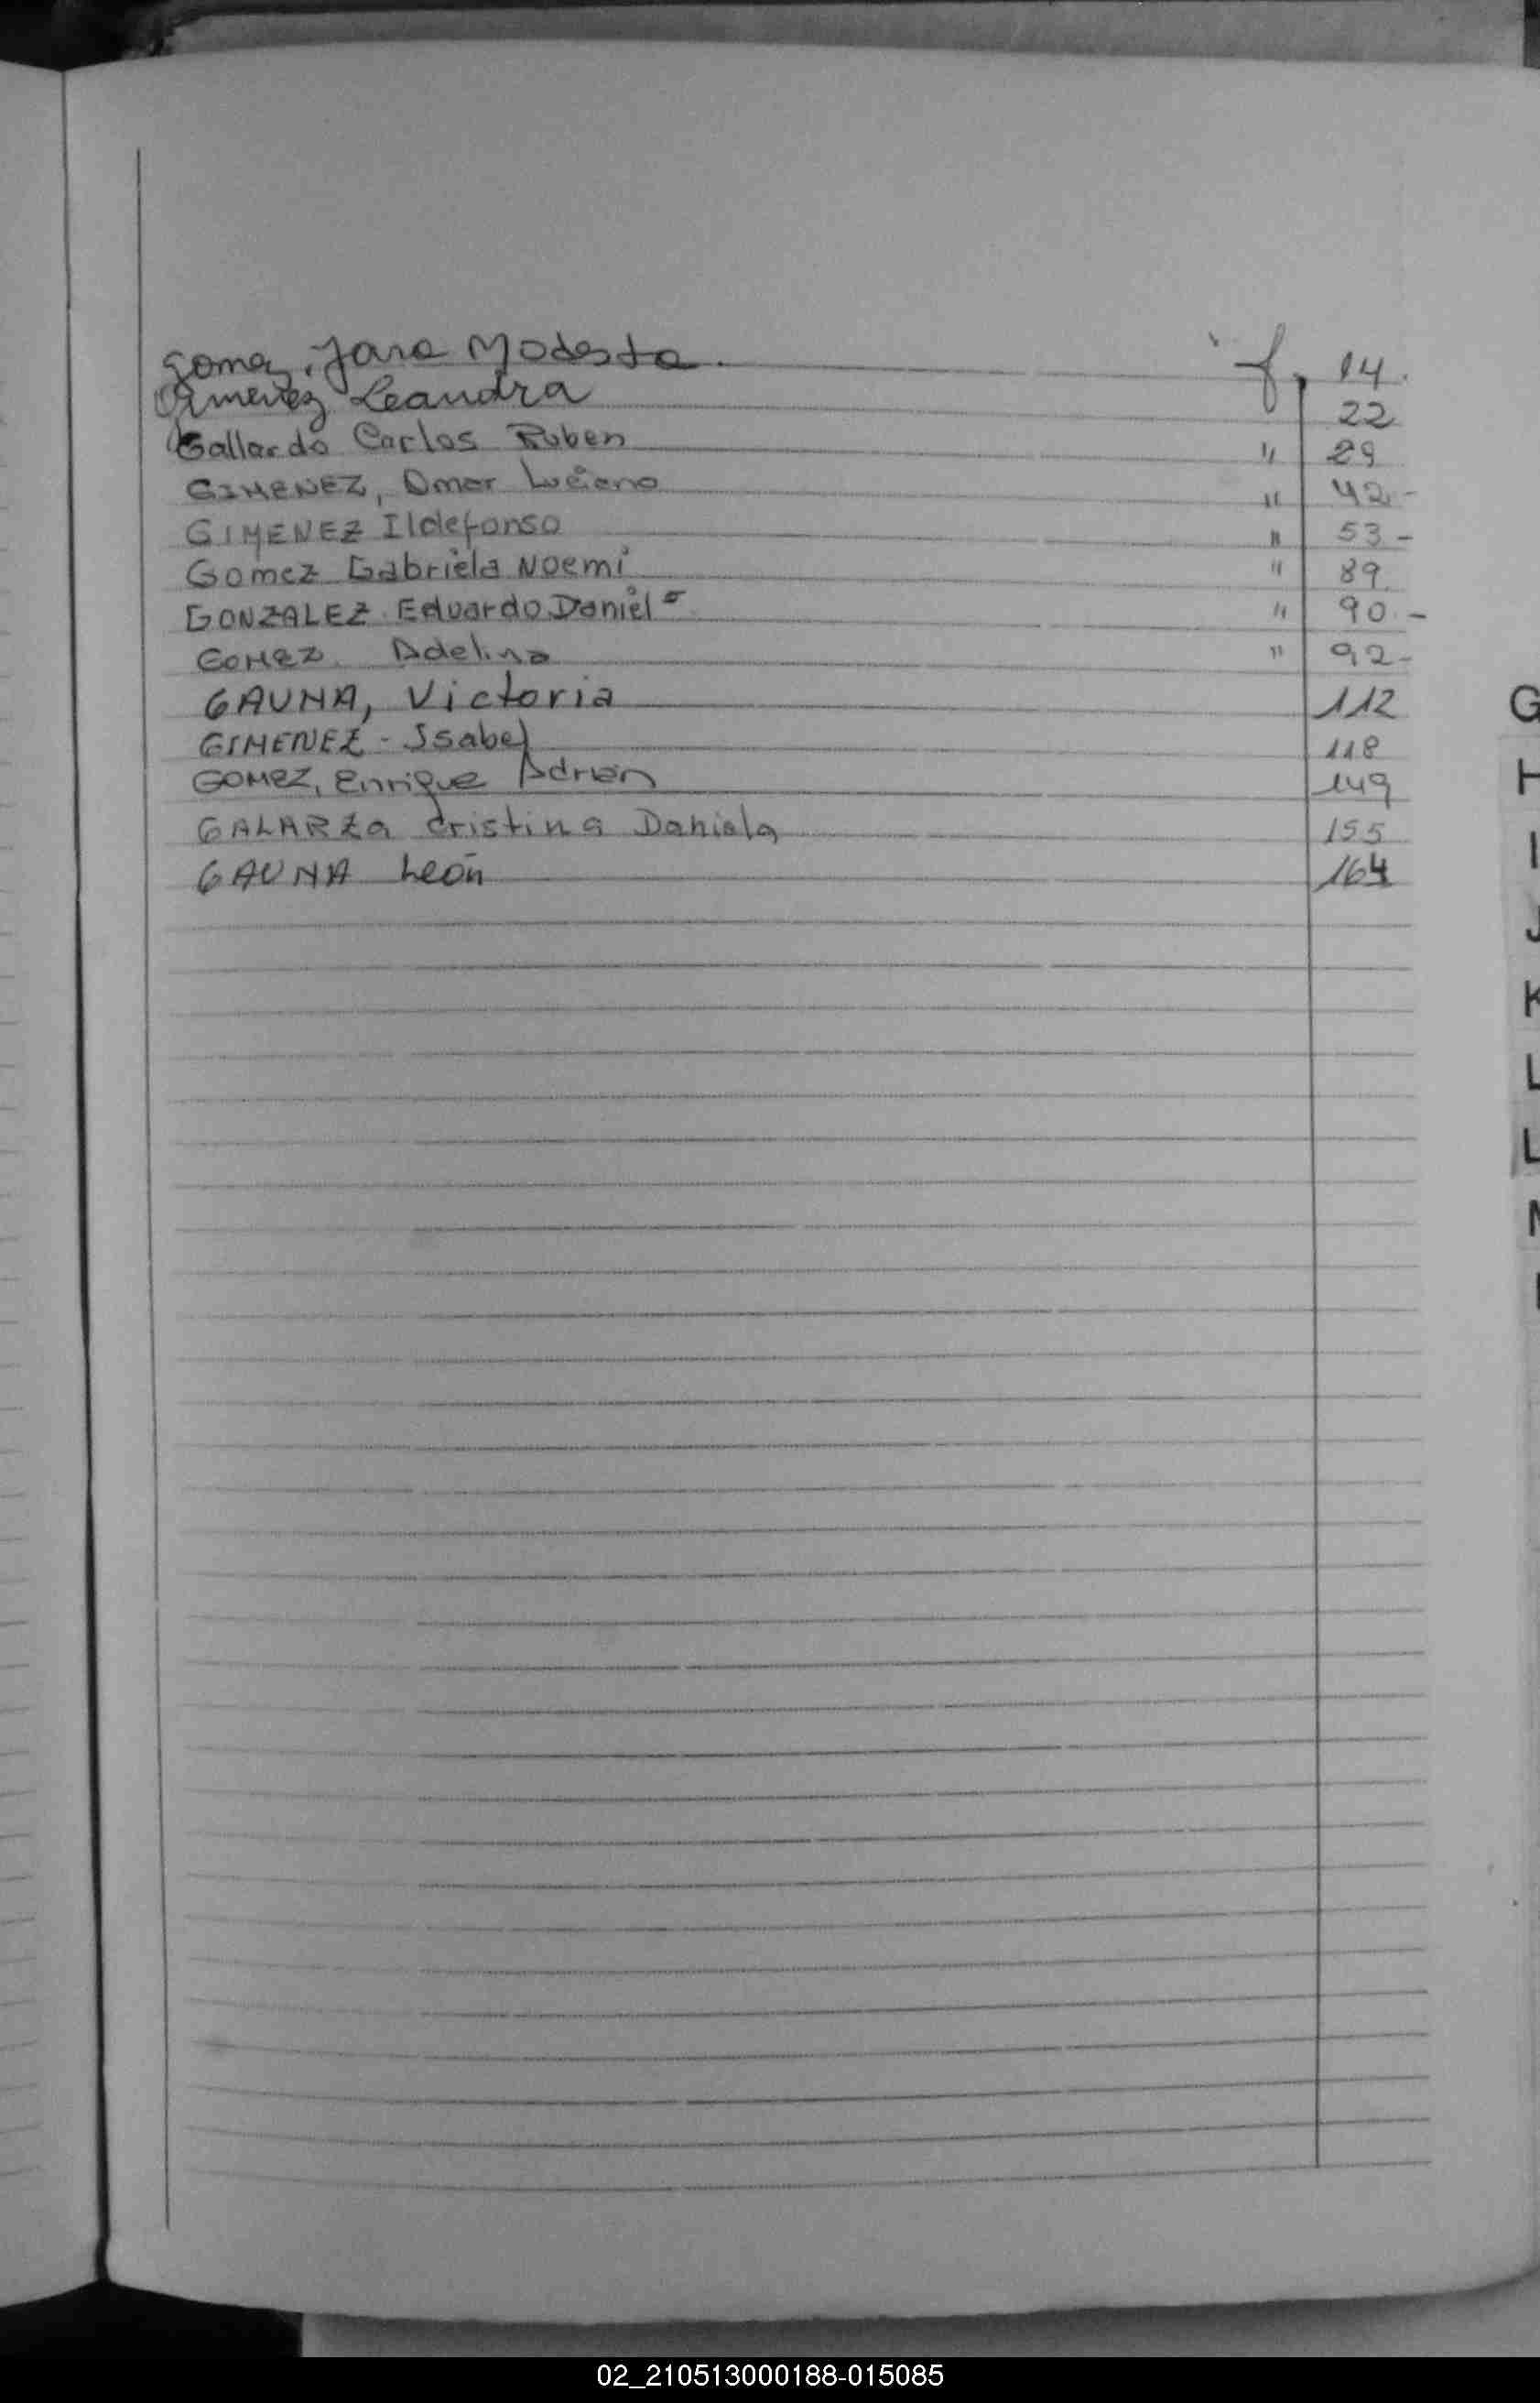 Gomez, Jara Modesta. f, 14.
Gimenez Leandra 22
Gallardo Carlos Ruben " 29
GIMENEZ, Omar Luciano " 42-
GIMENEZ Ildefonso " 53-
Gomez Gabriela Noemi " 89
GONZALEZ Eduardo Daniel- " 90-
GOMEZ Adelina " 92-
GAUNA, Victoria 112
GIMENEZ - Isabel 118
GOMEZ, Enrique Adrian 149
GALARZA Cristina Daniela 155
GAUNA León 164
G
H
I
J
K
L
L
M
02_210513000188-015085